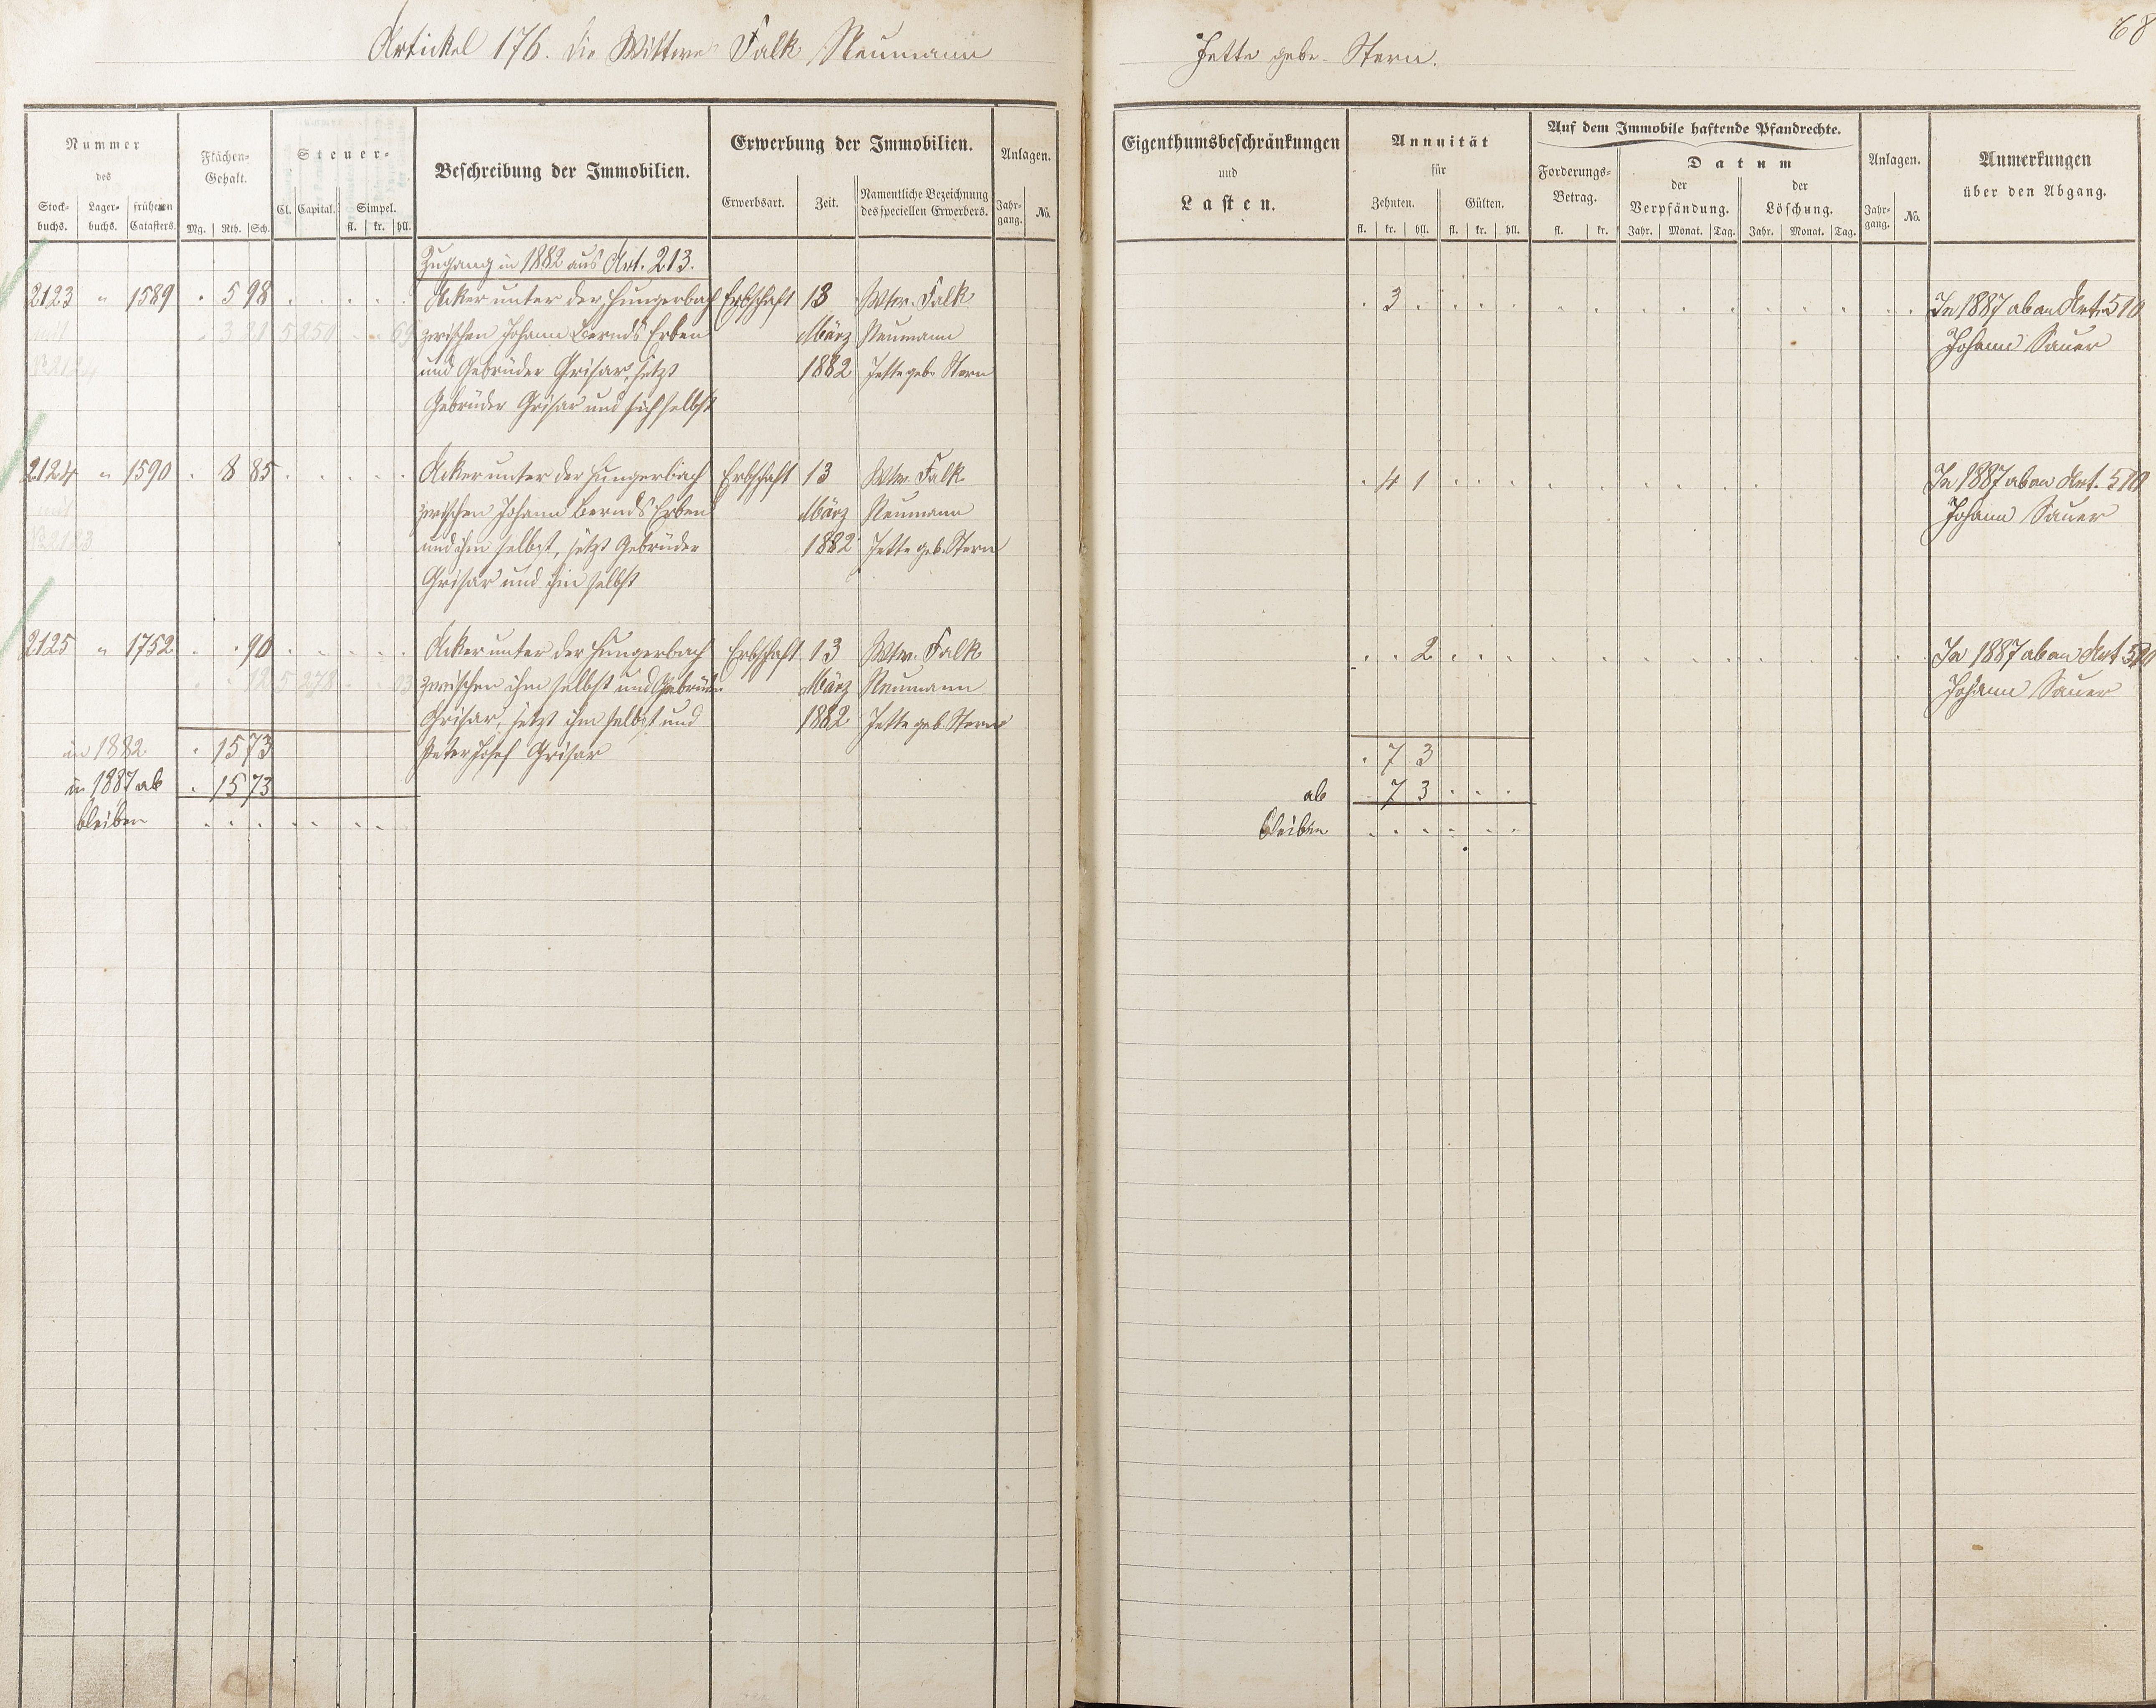 68
Artickel 176. Die Wittwe Falk Neumann
Jette gebr. Stern.
Nummer
des
Stock-buchs. Lager-buchs. früheren Catasters.
Flächen-Gehalt.
Mg. Rth. Sch.
Steuer-
Cl. Capital. Simpel.
fl. kr. hll.
Beschreibung der Immobilien.
Erwerbung der Immobilien.
Erwerbsart. Zeit. Namentliche Bezeichnung des speciellen Erwerbers.
Anlagen.
Jahr-gang. No.
Eigenthumsbeschränkungen
und
Lasten.
Annuität
für
Zehnten. Gülten.
fl. kr. hll. fl. kr. hll.
Auf dem Immobile haftende Pfandrechte.
Forderungs-Betrag.
fl. kr.
Datum
der Verpfändung. der Löschung.
Jahr. Monat. Tag. Jahr. Monat. Tag.
Anlagen.
Jahr-gang. No.
Anmerkungen
über den Abgang.
Zugang in 1882 aus Art. 213.
2123 " 1589 . 5 98 Acker unter der Hungerbach Erbschaft 13 Wtw. Falk . 3 . In 1887 ab an Art. 510
mit 3 21 5 250 69 zwischen Johann Bernds Erben März Neumann Johann Sauer
No 2124 und Gebrüder Grisar, jetzt 1882 Jette geb. Stern
Gebrüder Grisar und sich selbst
2124 " 1590 . 8 85 Acker unter der Hungerbach Erbschaft 13 Wtw. Falk . 4 1 In 1887 ab an Art. 510
mit zwischen Johann Bernds Erben März Neumann Johann Sauer
No 2123 und ihm selbst, jetzt Gebrüder 1882 Jette geb. Stern
Grisar und ihm selbst
2125 " 1752 . . 90 Acker unter der Hungerbach Erbschaft 13 Wtw. Falk . . 2 In 1887 ab an Art 510
12 5 278 03 zwischen ihm selbst und Gebrüder März Neumann Johann Sauer
Grisar, jetzt ihm selbst und 1882 Jette geb. Stern
in 1882 . 15 73 Peter Josef Grisar . 7 3
in 1887 ab . 15 73 ab . 7 3 . . .
bleiben . . . . . . . bleiben . . . . . .